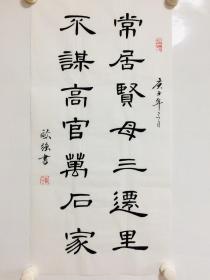 常居賢母三遷里
不謀高官萬石家
庚子年三月
歐強書